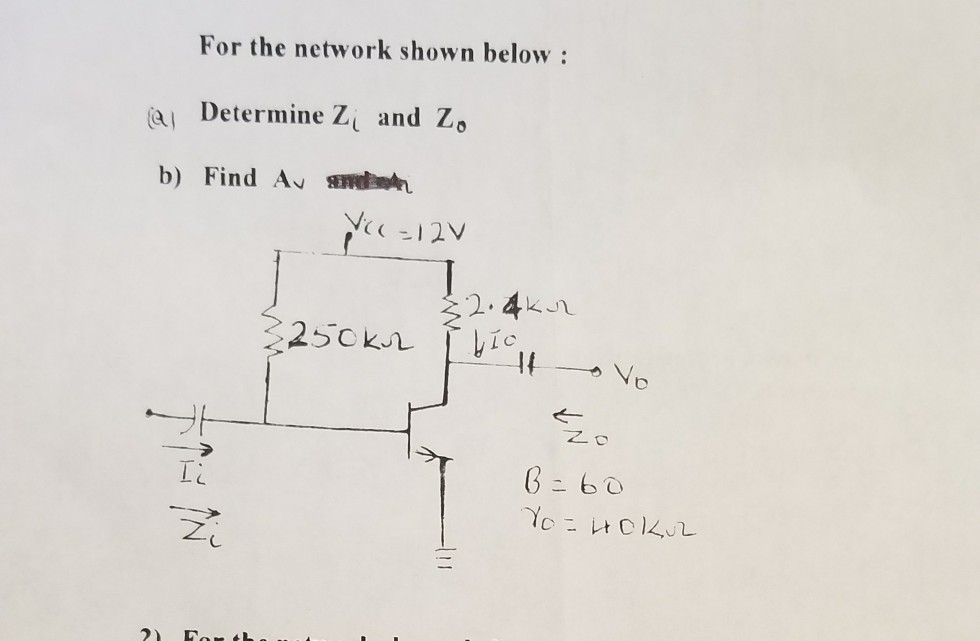 For the network shown below :
(a) Determine Zi and Zo
b) Find Av
Vcc = 12V
2.4kΩ
250kΩ
Ic
Vo
Zo
Ii
Zi
B = 60
ro = 40kΩ
2) For the